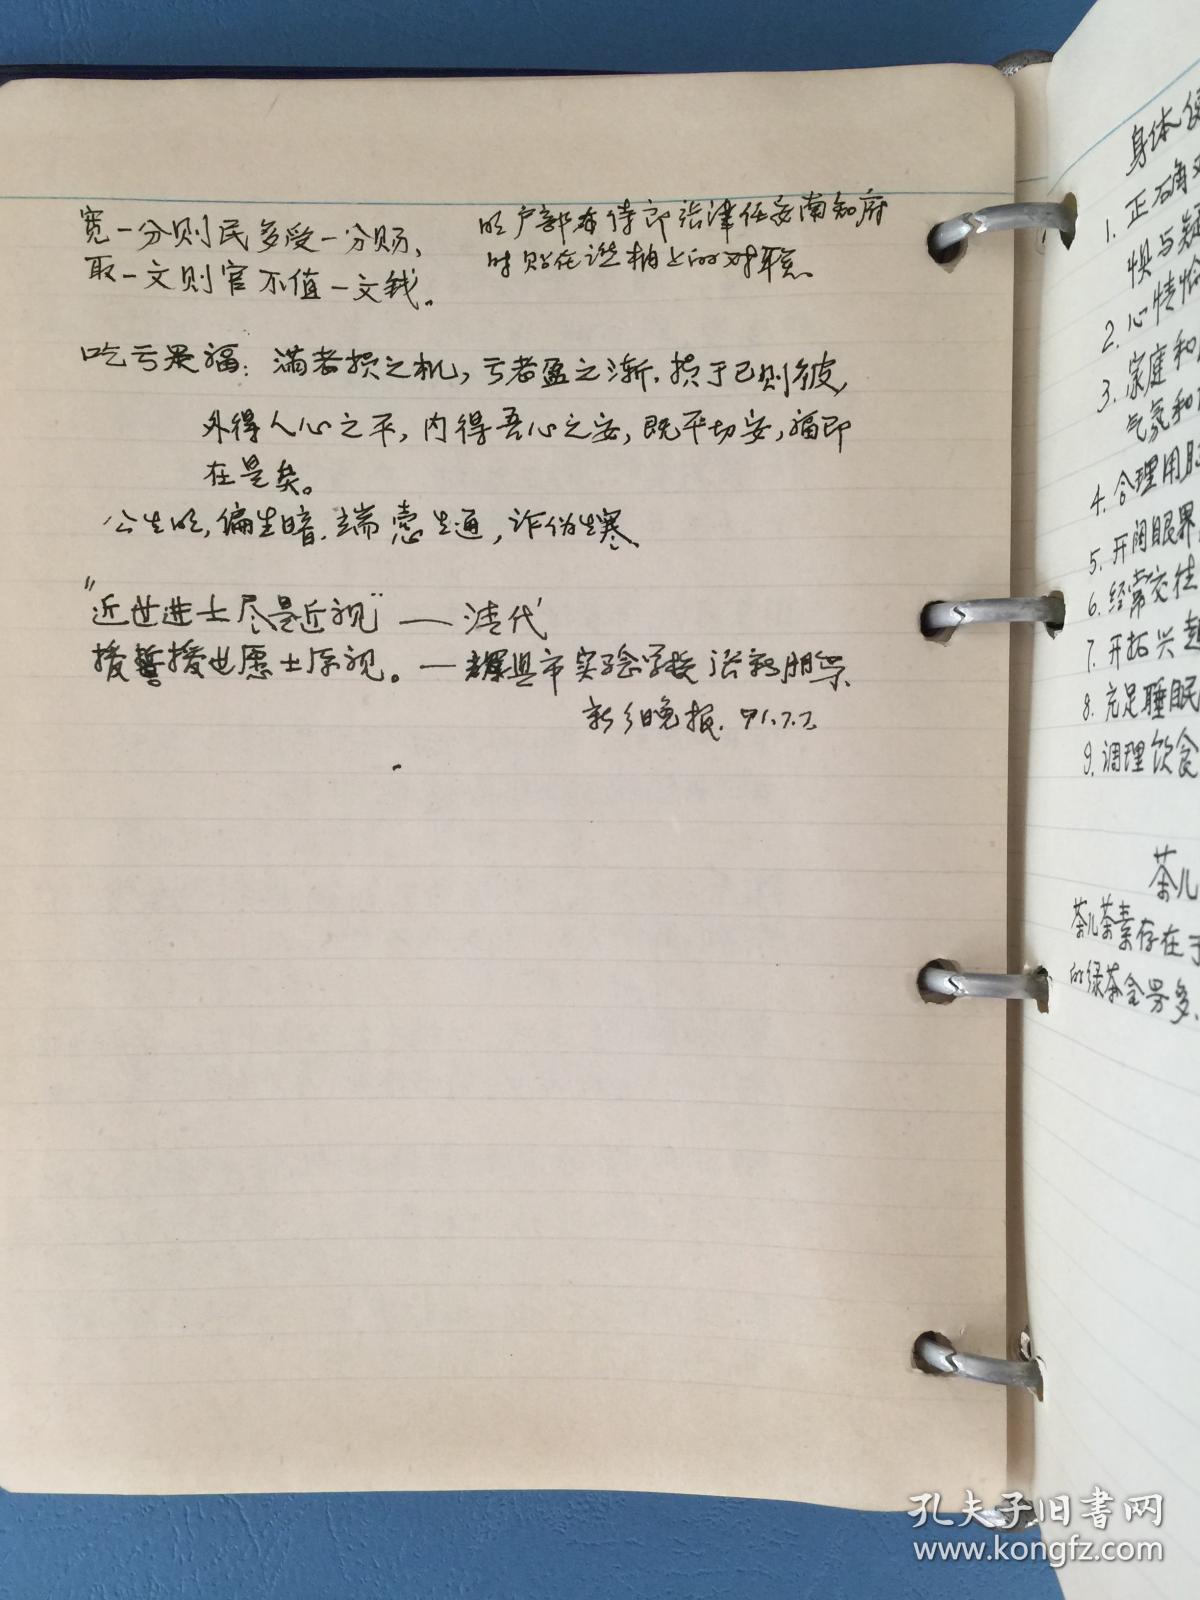 宽一分则民多受一分赐、
取一文则官不值一文钱。
明户部右侍郎张津任安南知府
时贴在柱上的对联。
吃亏是福：满者损之机，亏者盈之渐.损于己则彼，
外得人心之平，内得吾心之安，既平切安，福即
在是矣。
公生明，偏生暗.端悫生通，诈伪生塞.
“近世进士尽是近视”——清代
援 援也愿士 视。— 县市实验学校 张
新乡晚报. 91.7.2
身体
1. 正确对
惧与疑
2. 心情愉
3. 家庭和
气氛和
4. 合理用
5. 开阔眼界
6. 经常交往
7. 开拓兴趣
8. 充足睡眠
9. 调理饮食
茶儿
茶儿茶素存在于
的绿茶含量多、
孔夫子旧书网
www.kongfz.com